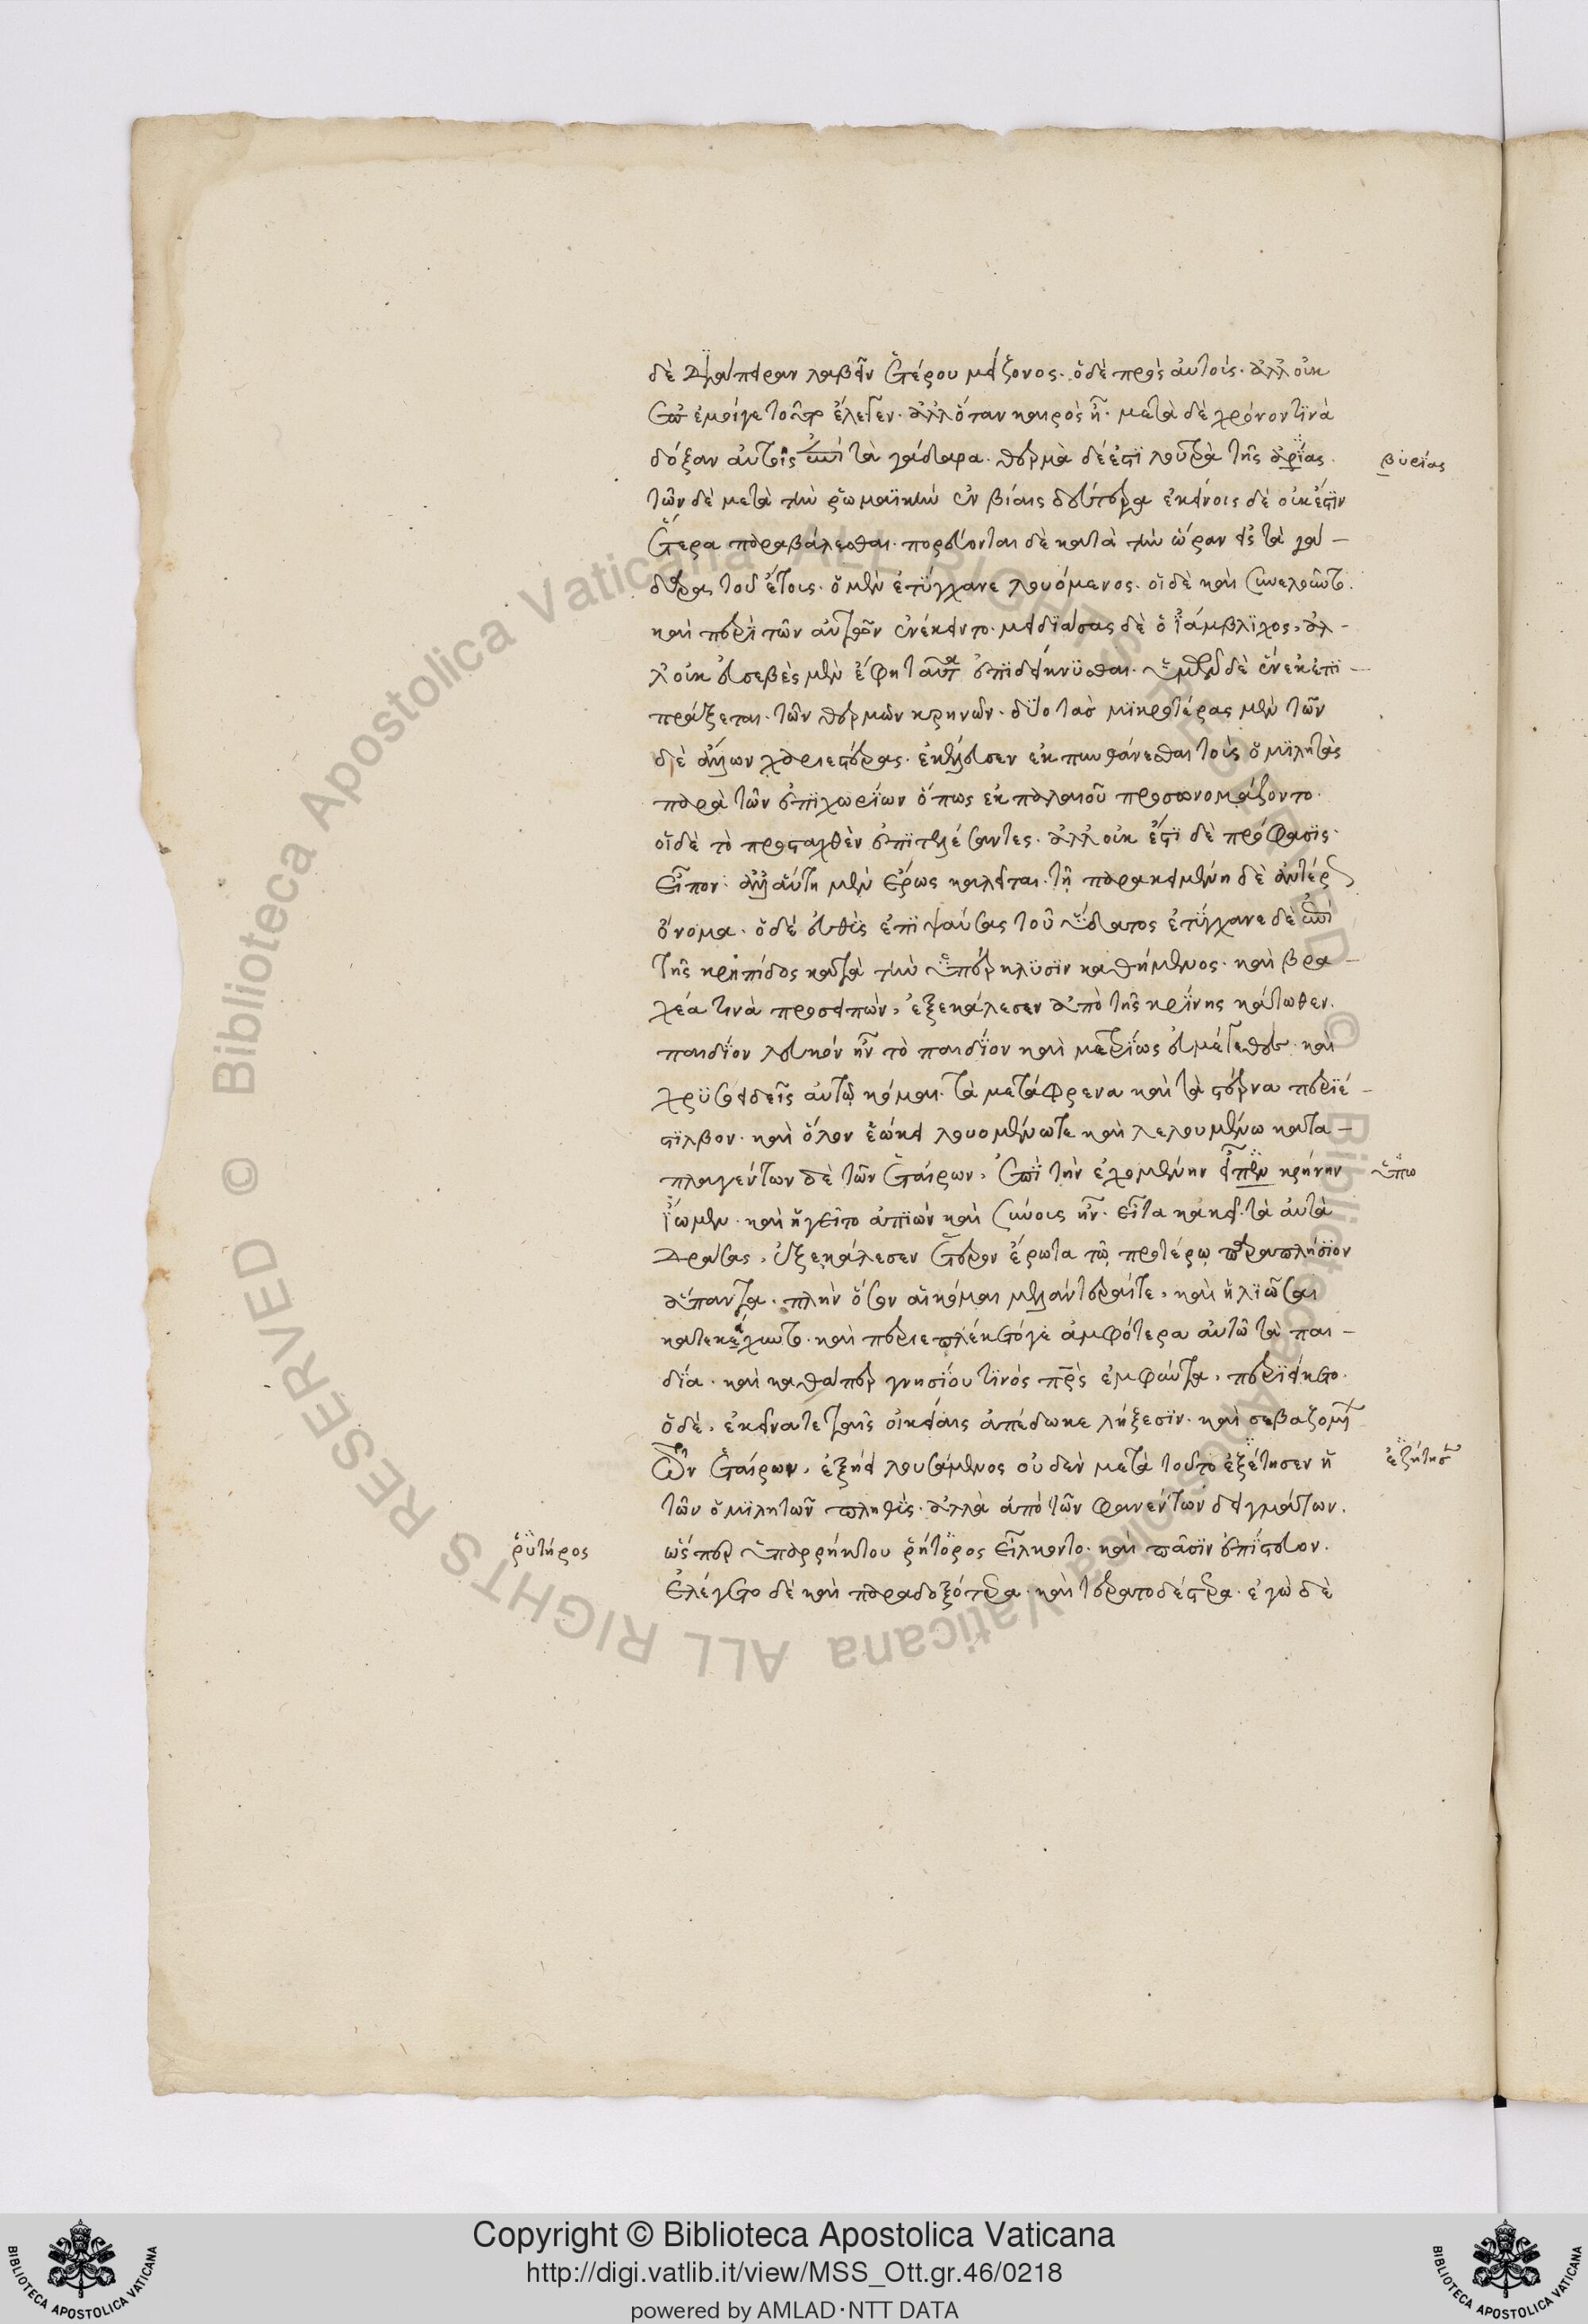 δὲ διάπειραν λαβεῖν ἑτέρου μείζονος. ὁ δὲ πρὸς αὐτοὺς. ἀλλ' οὐκ
ἐπ' ἐμοίγε τοῦτο ἔλεγεν. ἀλλ' ὅταν καιρὸς ᾖ. μετὰ δὲ χρόνον τινὰ
δόξαν αὐτοῖς ἐπὶ τὰ γάδαρα. θερμὰ δέ ἐστι λουτρὰ τῆς συρίας.
βυρίας
τῶν δὲ μετὰ τὴν ῥωμαϊκὴν ἐν βίαις δεύτερα ἐκείνοις δὲ οὐκ ἔστιν
ἕτερα παραβάλεσθαι. πορεύονται δὲ κατὰ τὴν ὥραν εἰς τὰ γά –
δαρα τοῦ ἔτους. ὁ μὲν ἐτύγχανε λουόμενος. οἱ δὲ καὶ συνελοῦντο.
καὶ περὶ τῶν αὐτῶν ἐνέκειντο. μειδιάσας δὲ ὁ ἰάμβλιχος, ἀλ –
λ' οὐκ εὐσεβὲς μὲν ἔφη ταῦτα ἐπιδείκνυσθαι. ὑμῶν δὲ ἕνεκ ἐπι –
πράξεται. τῶν θερμῶν κρηνῶν. δύο τὰς μικροτέρας μὲν τῶν
δὲ ἄλλων χαριεστέρας. ἐκέλευσεν ἐκπυνθάνεσθαι τοὺς ὁμιλητὰς
παρὰ τῶν ἐπιχωρίων ὅπως ἐκ παλαιοῦ προσωνομάζοντο.
οἱ δὲ τὸ προσταχθὲν ἐπιτελέσαντες. ἀλλ' οὐκ ἔστι δὲ πρόφασις.
εἶπον. ἀλλ' αὕτη μὲν ἔρως καλεῖται. τῇ παρακειμένῃ δὲ ἀντέρως
ὄνομα. ὁ δὲ εὐθὺς ἐπιψαύσας τοῦ ὕδατος ἐτύγχανε δὲ ἐπὶ
τῆς κρηπίδος κατὰ τὴν ὑπέρκλυσιν καθήμενος. καὶ βρα –
χέα τινὰ προσειπών, ἐξεκάλεσεν ἀπὸ τῆς κρίνης κάτωθεν.
παιδίον λευκόν ἦν τὸ παιδίον καὶ μετρίως εὐμέγεθες. καὶ
χρυσοειδεῖς αὐτῷ κόμαι. τὰ μετάφρενα καὶ τὰ στέρνα περιέ –
στιλβον. καὶ ὅλον ἐῴκει λουομένῳ τε καὶ λελουμένῳ κατα –
πλαγέντων δὲ τῶν ἑταίρων, ἐπὶ τὴν ἐχομένην εἶπεν κρήνην
ὑπω
ἴωμεν. καὶ ἡγεῖτο ἀπιὼν καὶ σύνους ἦν. εἶτα κἀκεῖ τὰ αὐτὰ
δράσας, ἐξεκάλεσεν ἕτερον ἔρωτα τῷ προτέρῳ παραπλήσιον
ἅπαντα. πλὴν ὅσον αἱ κόμαι μελάντεραί τε, καὶ ἡλιῶσαι
κατεκέχυντο. καὶ περιεπλέκετό γε ἀμφότερα αὐτῷ τὰ παι –
δία. καὶ καθάπερ γνησίου τινὸς πρς ἐμφύντα, περιείχετο.
ὁ δὲ, ἐκεῖνά τε ταῖς οἰκείαις ἀπέδωκε λήξεσιν. καὶ σεβαζομέ
τῶν ἑταίρων, ἐξῄει λουσάμενος οὐδὲν μετὰ τοῦτο ἐξέτησεν ἡ
ἐζήτησε
τῶν ὁμιλητῶν πληθὺς. ἀλλὰ ἀπὸ τῶν φανέντων δειγμάτων.
ῥυτῆρος
ὥσπερ ὑπ' ἀρρήκτου ῥήτορος εἵλκοντο. καὶ πᾶσιν ἐπίστευον.
ἐλέγετο δὲ καὶ παραδοξότερα. καὶ τερατοδέστερα. ἐγὼ δὲ
Copyright © Biblioteca Apostolica Vaticana
http://digi.vatlib.it/view/MSS_Ott.gr.46/0218
powered by AMLAD·NTT DATA